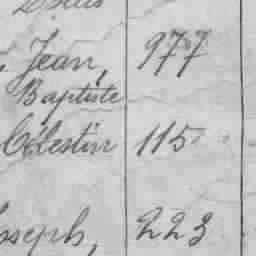 Louis
Jean, 977
Baptiste
Célestin 115
Joseph, 223